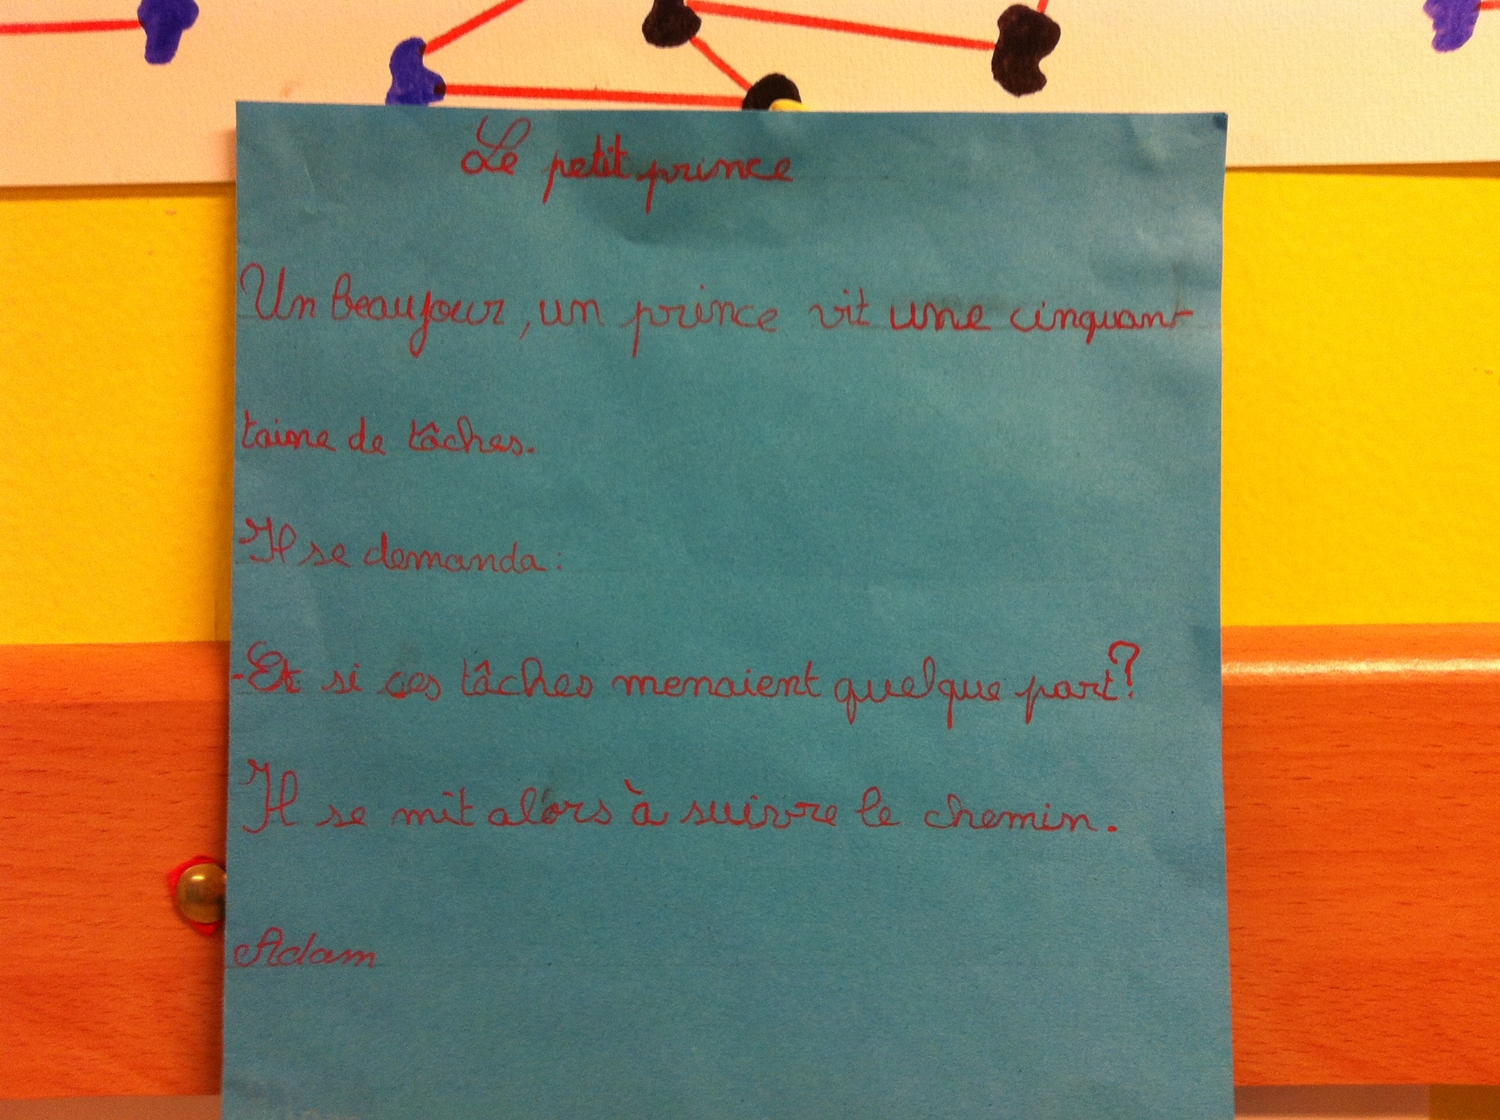 Le petit prince
Un beau jour, un prince vit une cinquant
taine de tâches.
Il se demanda :
-Et si ces tâches menaient quelque part ?
Il se mit alors à suivre le chemin.
Adam